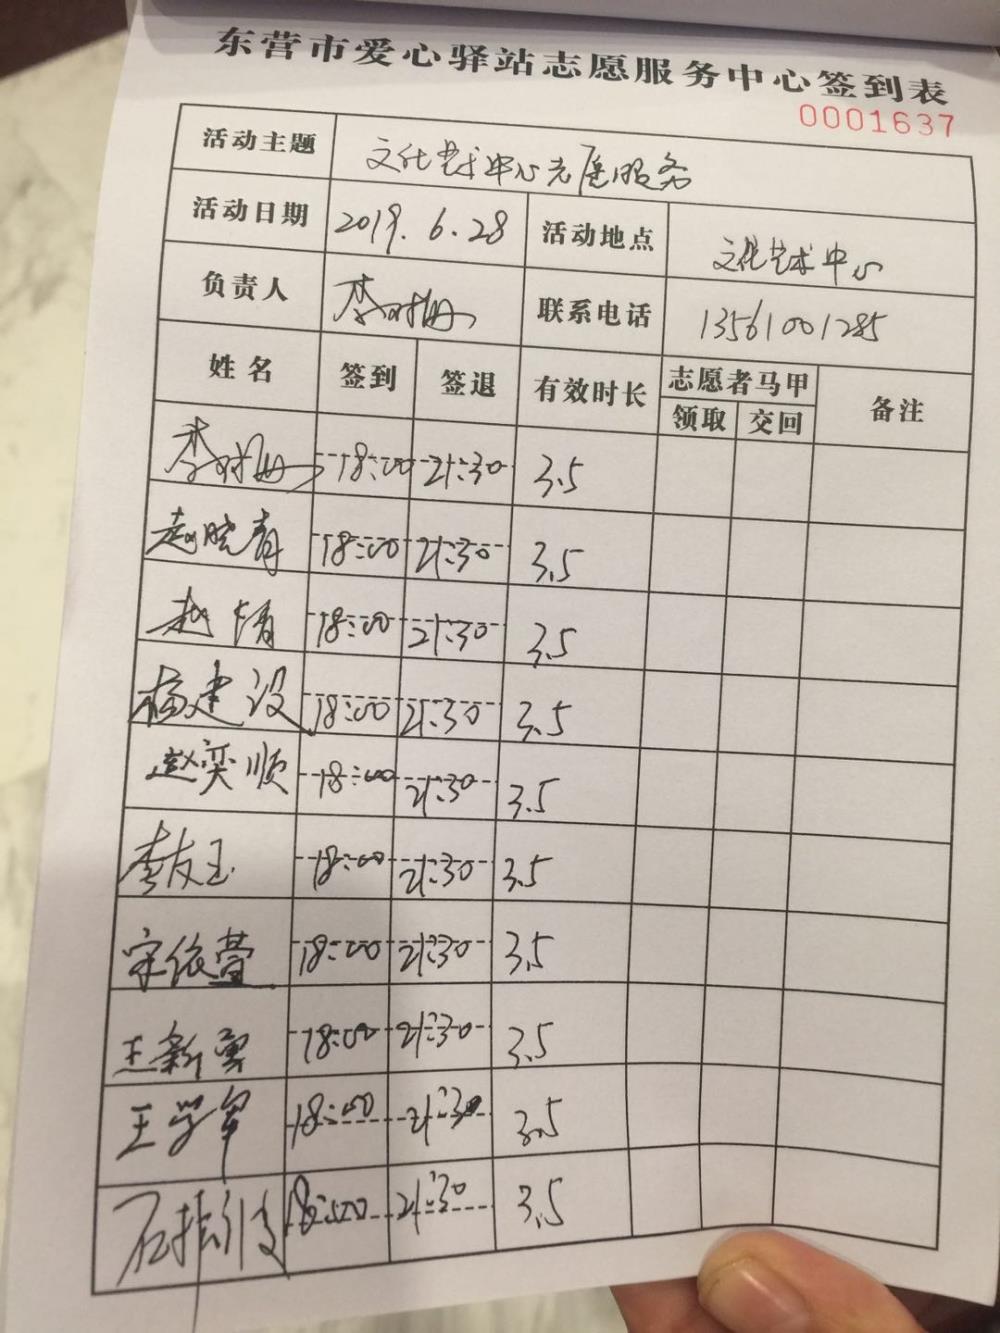 东营市爱心驿站志愿服务中心签到表
0001637
活动主题 文化艺术中心志愿服务
活动日期 2019.6.28 活动地点 文化艺术中心
负责人 联系电话 13561001285
姓名 签到 签退 有效时长 志愿者马甲 备注
领取 交回
18:00 21:30 3.5
赵晓青 18:00 21:30 3.5
赵倩 18:00 21:30 3.5
杨建设 18:00 21:30 3.5
赵奕顺 18:00 21:30 3.5
李友玉 18:00 21:30 3.5
宋依萱 18:00 21:30 3.5
王新勇 18:00 21:30 3.5
王学军 18:00 21:30 3.5
18:00 21:30 3.5